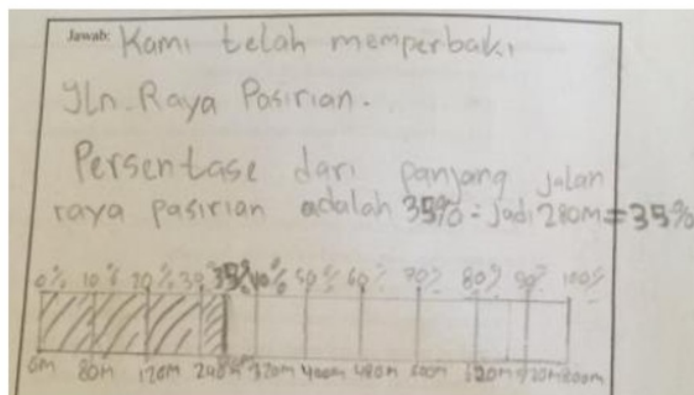 Jawab: Kami telah memperbaki
Jln. Raya Pasirian.
Persentase dari panjang jalan
raya pasirian adalah 35% = Jadi 280m = 35%
0% 10% 20% 30% 35% 40% 50% 60% 70% 80% 90% 100%
0m 80m 120m 240m 320m 400m 480m 800m